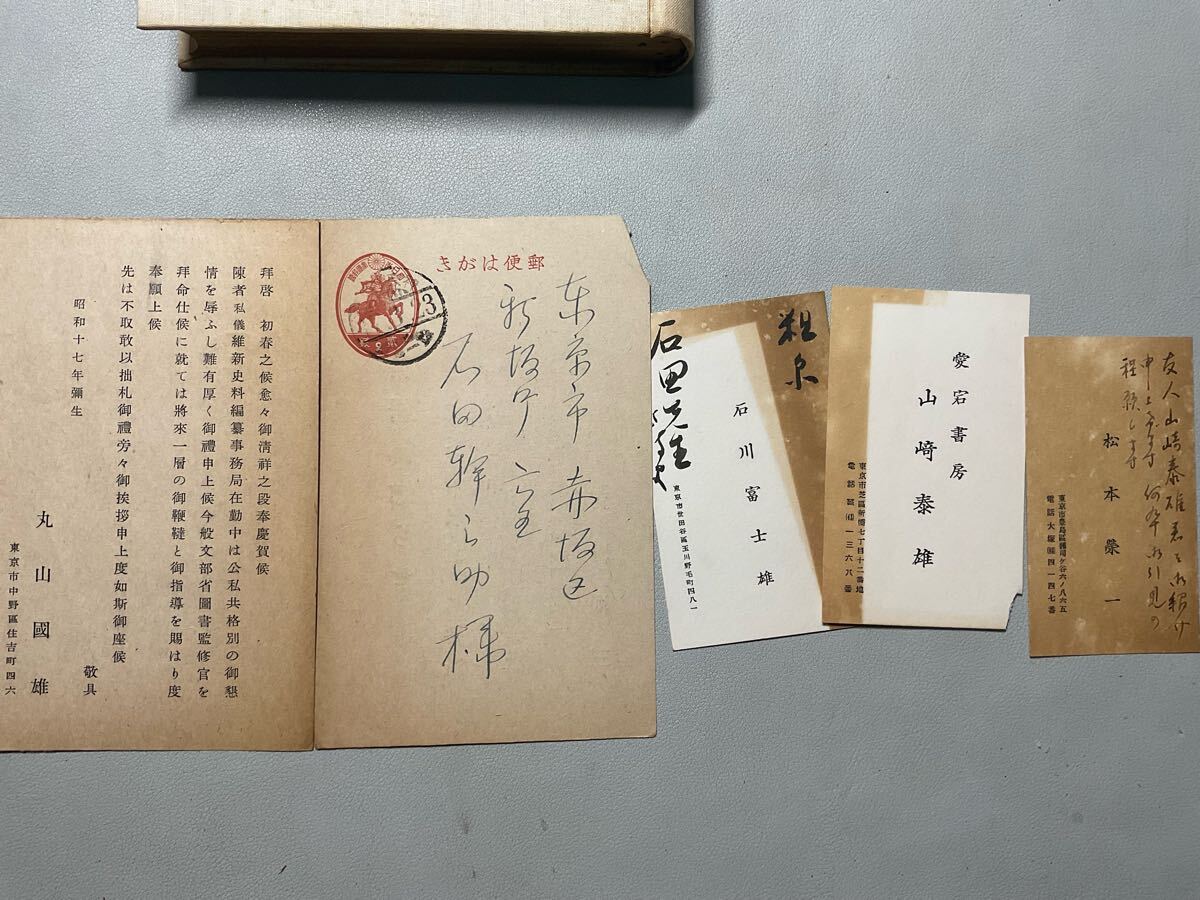 拜啓　初春之候愈々御淸祥之段奉慶賀候
陳者私儀維新史料編纂事務局在勤中は公私共格別の御懇
情を辱ふし難有厚く御禮申上候今般文部省圖書監修官を
拜命仕候に就ては將來一層の御鞭韃と御指導を賜はり度
奉願上候
先は不取敢以拙札御禮旁々御挨拶申上度如斯御座候
敬具
昭和十七年彌生
丸山國雄
東京市中野區住吉町四六
郵便はがき
东京市赤坂区
新坂町
石田幹之助様
粗末
石田先生
石川富士雄
東京市世田谷區玉川野毛町四八一
愛宕書房
山崎泰雄
東京市芝區新橋七丁目十二番地
電話芝㊸一三六八番
友人山崎泰雄君を御紹介
申上ます 何卒御引見の
程願します
松本榮一
東京市豊島區雜司ケ谷六ノ八六五
電話大塚㊆四一四七番